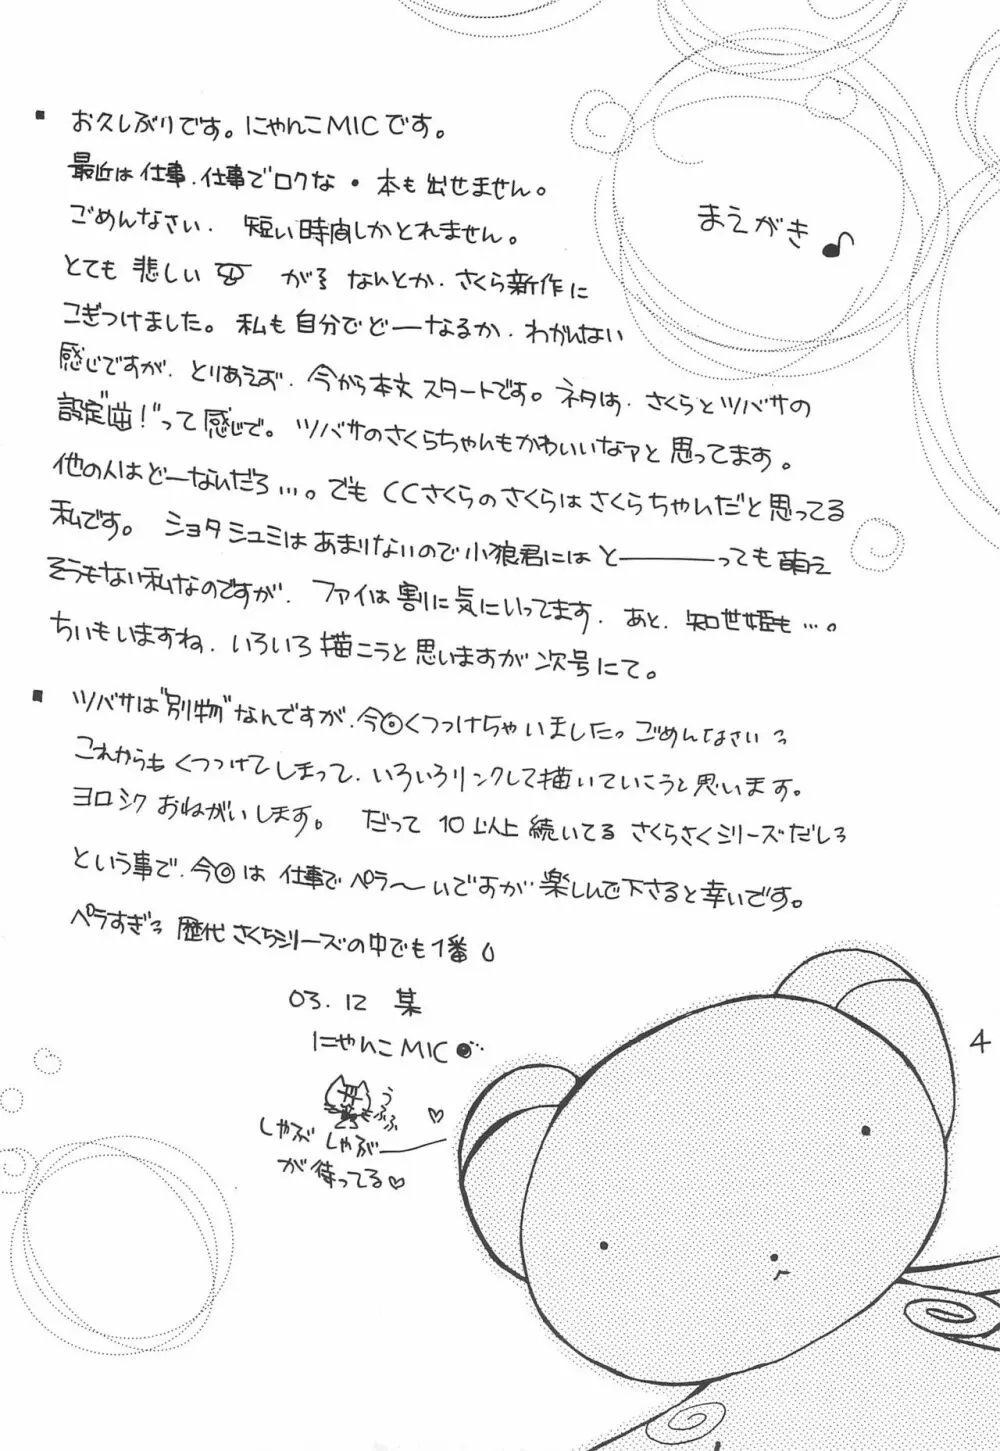 まえがき♪
■ お久しぶりです。にゃんこMICです。
最近は仕事、仕事でロクな・本も出せません。
ごめんなさい、短い時間しかとれません。
とても悲しい が なんとか、さくら新作に
こぎつけました。私も自分でどーなるか、わかんない
感じですが、とりあえず、今から本文スタートです。ネタは、さくらとツバサの
設定"逆!"って感じで。ツバサのさくらちゃんもかわいいなァと思ってます。
他の人はどーなんだろ…。でもCCさくらのさくらはさくらちゃんだと思ってる
私です。ショタシュミはあまりないので小狼君にはと―――っても萌え
そうもない私なのですが、ファイは割に気にいってます、あと、知世姫も…。
ちぃもいますね、いろいろ描こうと思いますが次号にて。
■ ツバサは"別物"なんですが、今回くっつけちゃいました。ごめんなさいっ
これからもくっつけてしまって、いろいろリンクして描いていこうと思います。
ヨロシクおねがいします。だって10以上続いてるさくらさくシリーズだしっ
という事で、今回は仕事でペラ〜いですが楽しんで下さると幸いです。
ペラすぎっ歴代さくらシリーズの中でも1番
03.12 某
にゃんこMIC
うふふ
しゃぶしゃぶー
が待ってる♡
4